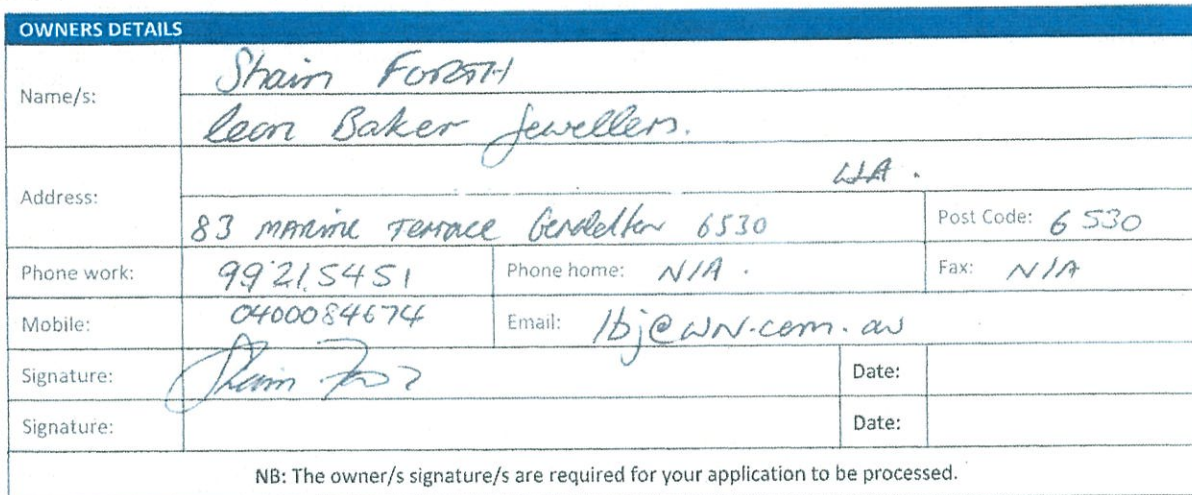 OWNERS DETAILS
Name/s: Shain FORSTH
Leon Baker Jewellers.
Address: WA.
83 MARINE TERRACE Geraldton 6530 Post Code: 6530
Phone work: 99215451 Phone home: N/A. Fax: N/A
Mobile: 0400084674 Email: lbj@WN.com.au
Signature: Date:
Signature: Date:
NB: The owner/s signature/s are required for your application to be processed.